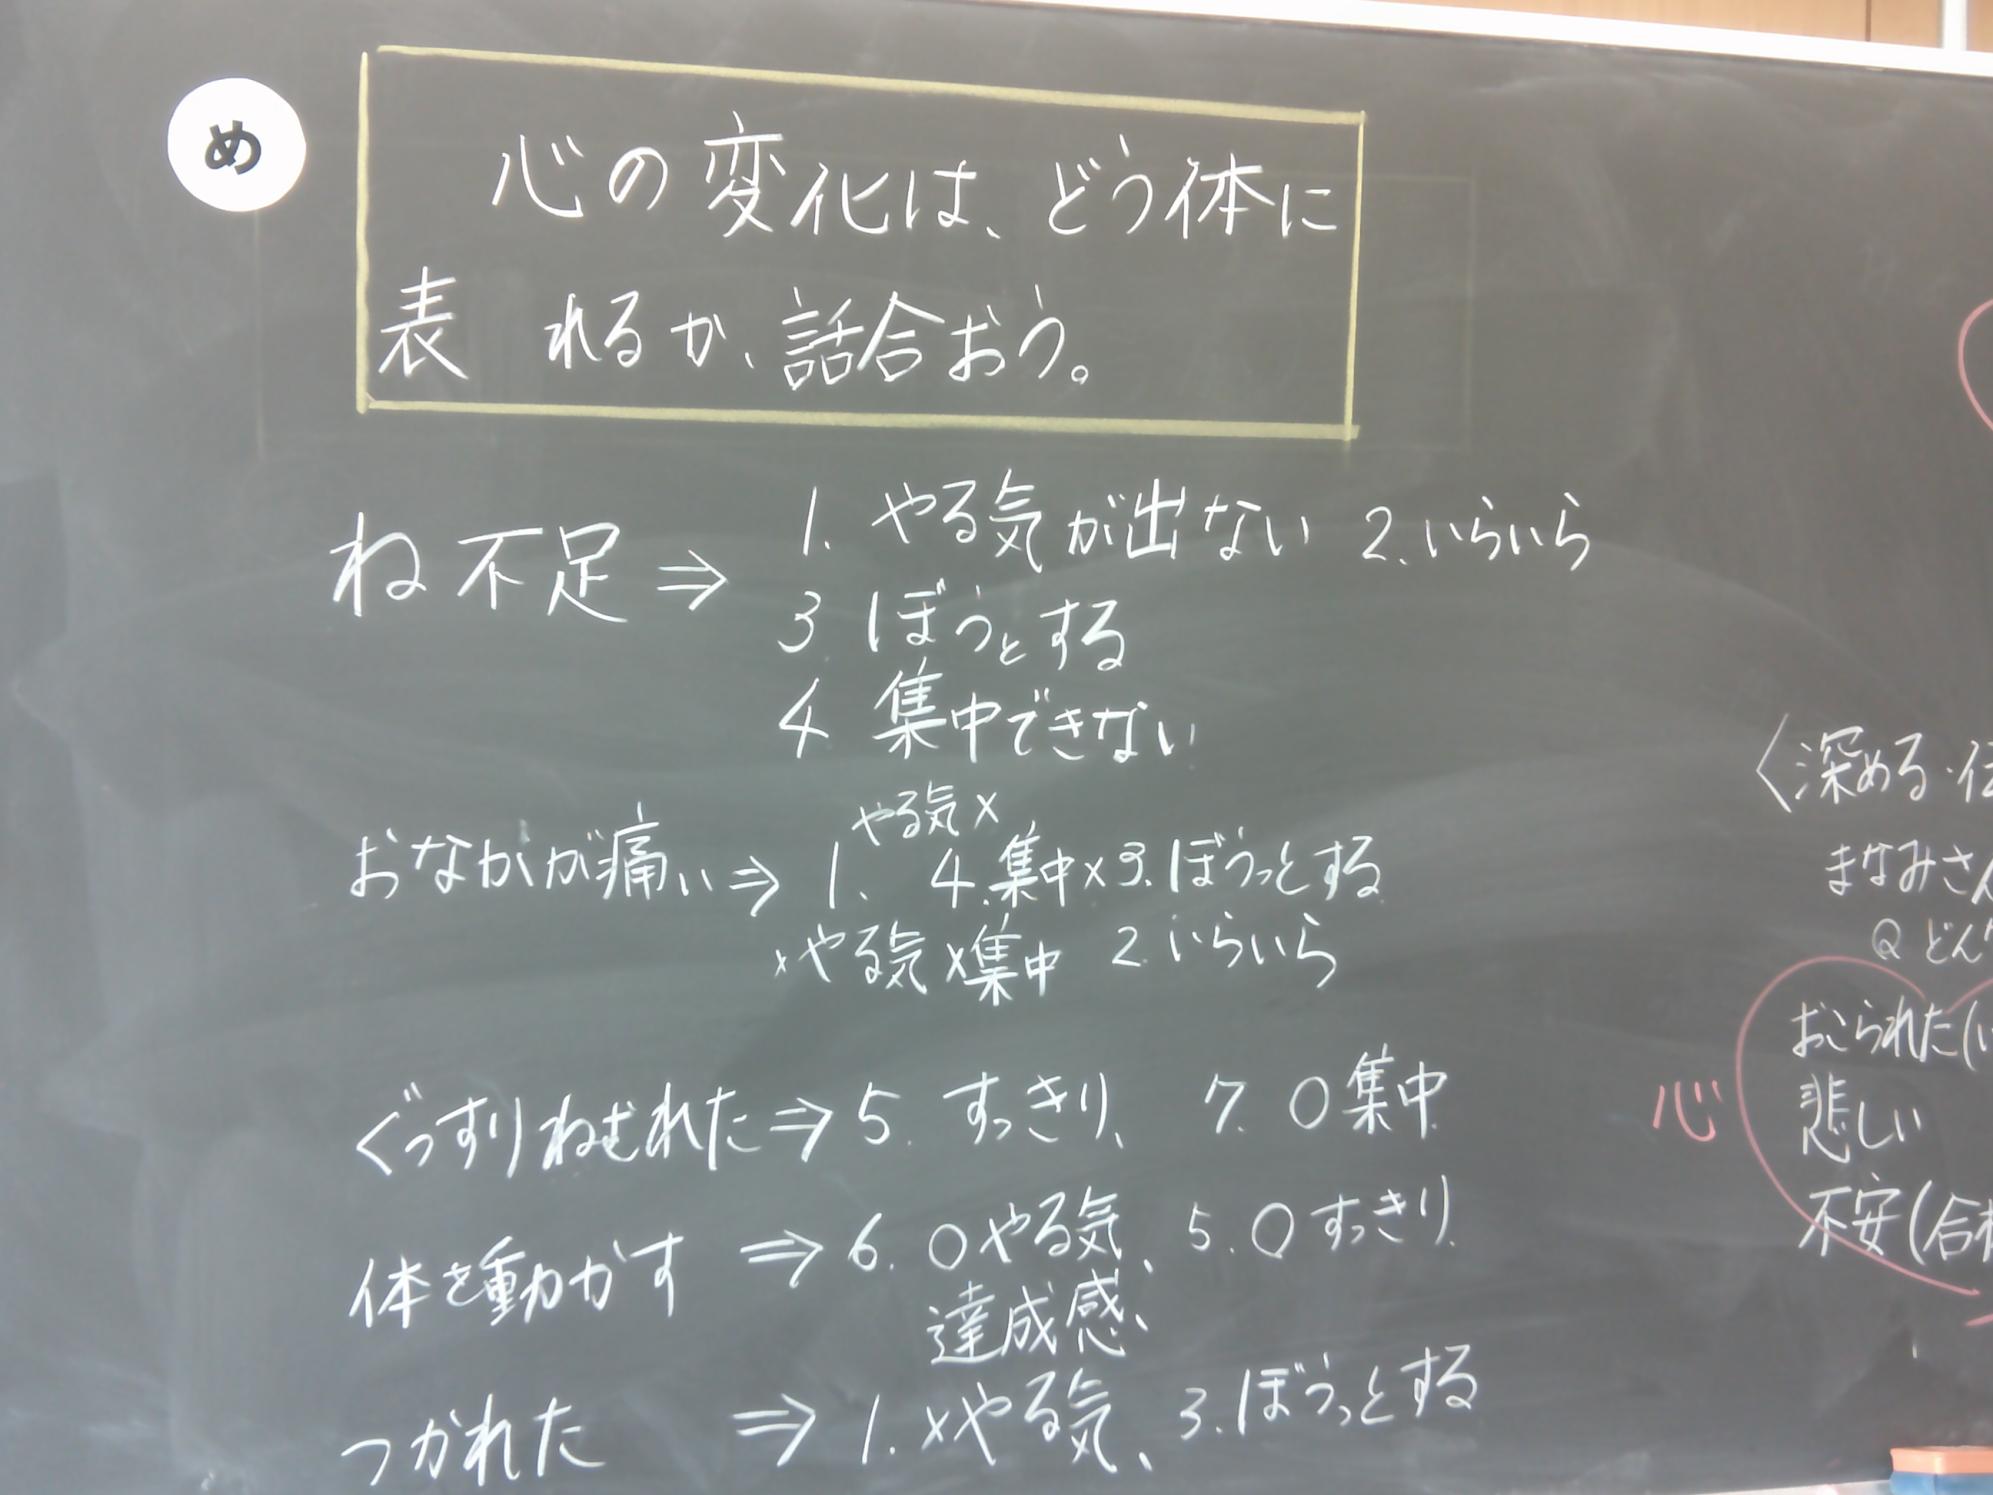 め
心の変化は、どう体に
表 れるか、話合おう。
ね不足⇒ 1. やる気が出ない 2. いらいら
3 ぼうっとする
4 集中できない
やる気×
おなかが痛い⇒ 1、 4.集中×3.ぼうっとする
×やる気 ×集中 2.いらいら
ぐっすりねむれた⇒5. すっきり、 7. ○集中
体を動かす ⇒6. ○やる気、5. ○すっきり
達成感、
つかれた ⇒1. ×やる気、3.ぼうっとする
〈深める・伝
まなみさん
Q どん
心
おこられた(い
悲しい
不安(合